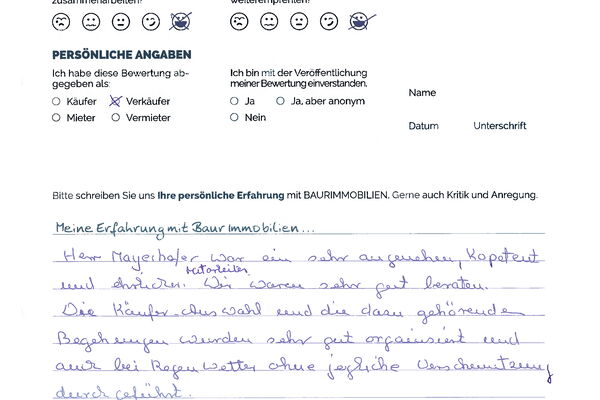 zusammenarbeiten? weiterempfehlen?
PERSÖNLICHE ANGABEN
Ich habe diese Bewertung ab- Ich bin mit der Veröffentlichung
gegeben als: meiner Bewertung einverstanden.
Käufer Verkäufer Ja Ja, aber anonym Name
Mieter Vermieter Nein
Datum Unterschrift
Bitte schreiben Sie uns Ihre persönliche Erfahrung mit BAURIMMOBILIEN. Gerne auch Kritik und Anregung.
Meine Erfahrung mit Baur Immobilien...
Herr Mayerhofer war ein sehr angenehen, Kopetent
und ehrlicher Mitarbeiter. Wir waren sehr gut beraten.
Die Käufer-Auswahl und die dazu gehörenden
Begehungen wurden sehr gut orgainsiert und
auch bei Regenwetter ohne jegliche Verschmutzung
durchgeführt.